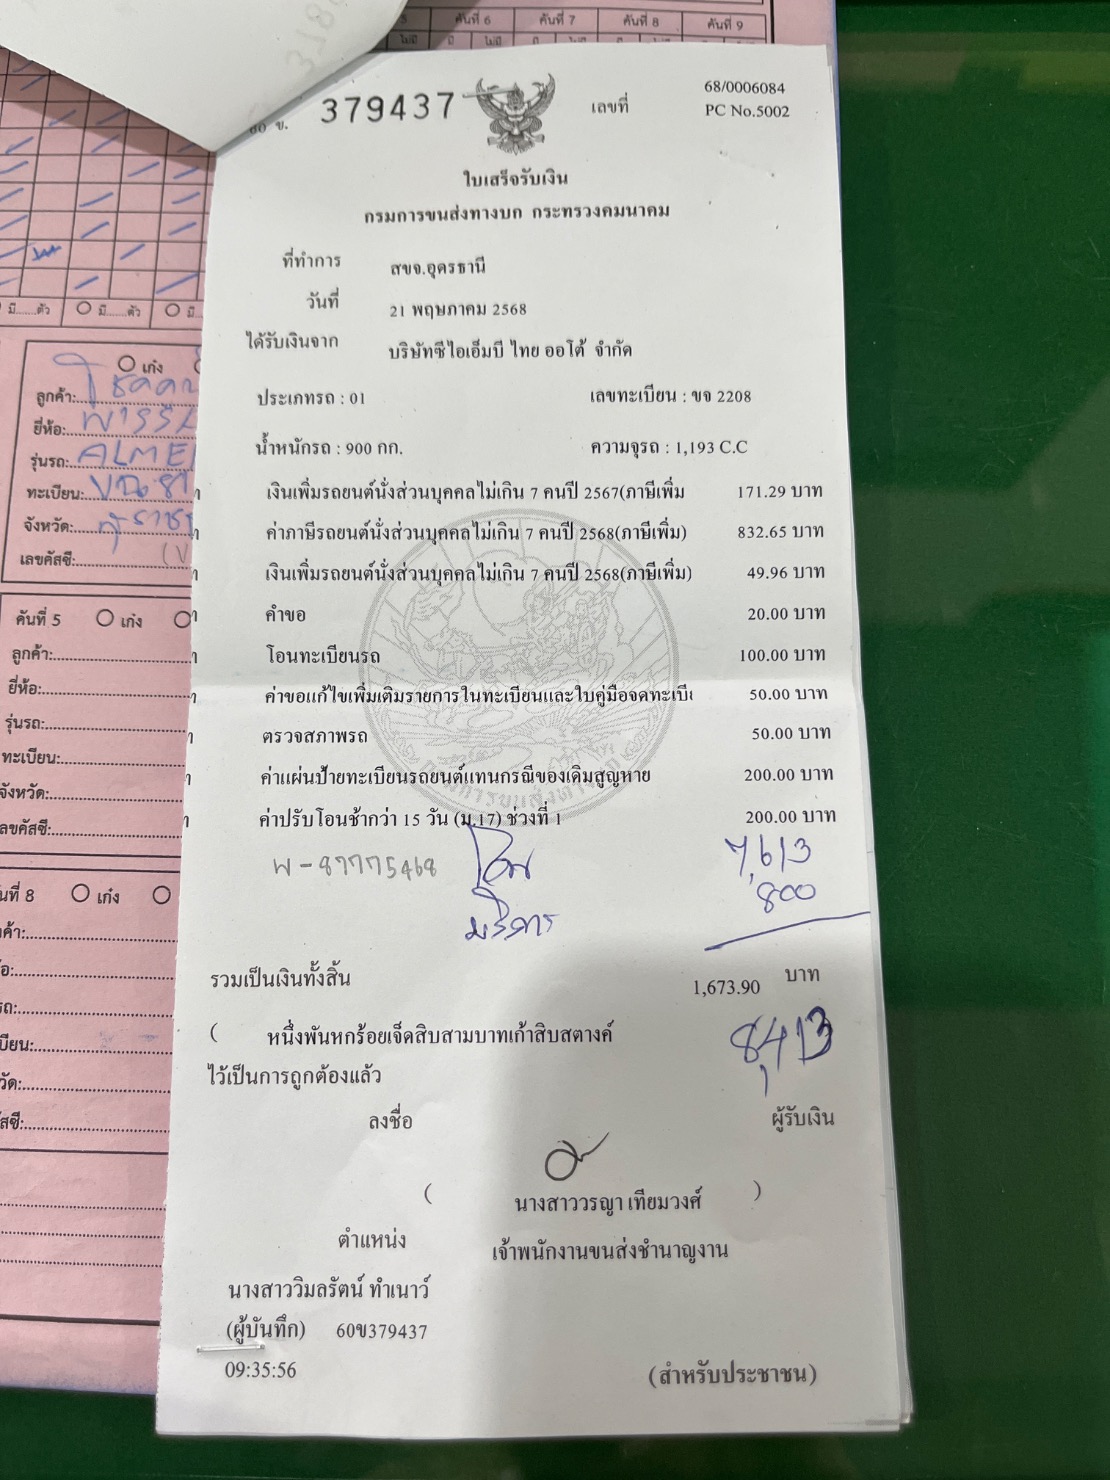 คันที่ 6 คันที่ 7 คันที่ 8 คันที่ 9
ไม่มี มี ไม่มี มี
379437
เลขที่
68/0006084
PC No.5002
ใบเสร็จรับเงิน
กรมการขนส่งทางบก กระทรวงคมนาคม
ที่ทำการ สขจ.อุดรธานี
วันที่ 21 พฤษภาคม 2568
ได้รับเงินจาก บริษัทซีไอเอ็มบี ไทย ออโต้ จำกัด
ประเภทรถ : 01 เลขทะเบียน : ขจ 2208
น้ำหนักรถ : 900 กก. ความจุรถ : 1,193 C.C
เงินเพิ่มรถยนต์นั่งส่วนบุคคลไม่เกิน 7 คนปี 2567(ภาษีเพิ่ม 171.29 บาท
ค่าภาษีรถยนต์นั่งส่วนบุคคลไม่เกิน 7 คนปี 2568(ภาษีเพิ่ม) 832.65 บาท
เงินเพิ่มรถยนต์นั่งส่วนบุคคลไม่เกิน 7 คนปี 2568(ภาษีเพิ่ม) 49.96 บาท
คำขอ 20.00 บาท
โอนทะเบียนรถ 100.00 บาท
ค่าขอแก้ไขเพิ่มเติมรายการในทะเบียนและใบคู่มือจดทะเบี 50.00 บาท
ตรวจสภาพรถ 50.00 บาท
ค่าแผ่นป้ายทะเบียนรถยนต์แทนกรณีของเดิมสูญหาย 200.00 บาท
ค่าปรับโอนช้ากว่า 15 วัน (ม.17) ช่วงที่ 1 200.00 บาท
W-87775468 โอน 7,613
บริการ 800
รวมเป็นเงินทั้งสิ้น 1,673.90 บาท
( หนึ่งพันหกร้อยเจ็ดสิบสามบาทเก้าสิบสตางค์
8,413
ไว้เป็นการถูกต้องแล้ว
ลงชื่อ ผู้รับเงิน
( นางสาววรญา เทียมวงศ์ )
ตำแหน่ง เจ้าพนักงานขนส่งชำนาญงาน
นางสาววิมลรัตน์ ทำเนาว์
(ผู้บันทึก) 60ข379437
09:35:56
(สำหรับประชาชน)
มี......ตัว มี......ตัว
เก๋ง
ลูกค้า:
ยี่ห้อ:
รุ่นรถ: ALME
ทะเบียน:
จังหวัด:
เลขคัสซี:
คันที่ 5 เก๋ง
ลูกค้า:
ยี่ห้อ:
รุ่นรถ:
ทะเบียน:
จังหวัด:
ลขคัสซี:
นที่ 8 เก๋ง